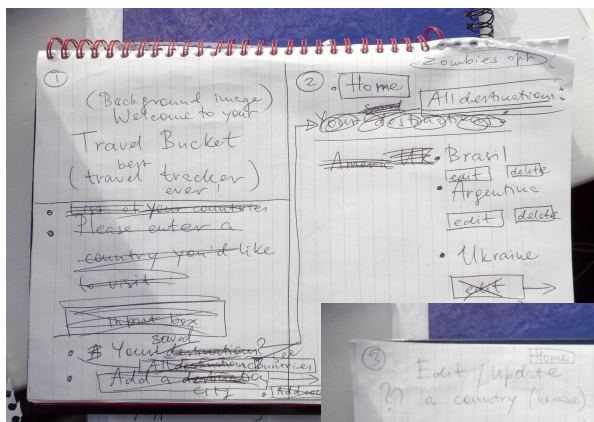 ①
(Background image)
Welcome to your
Travel Bucket
best
(travel tracker
ever!)
List of your countries
Please enter a
country you'd like
to visit
input box
saved
Your destinations? see
All destination countries
Add a destination
city
Add
②
Home
Zombies opt
All destinations:
saved
Your destinations
Brasil
edit delete
Argentina
edit delete
Ukraine
edit
③
Home
Edit / update
?? a country (Ukraine)